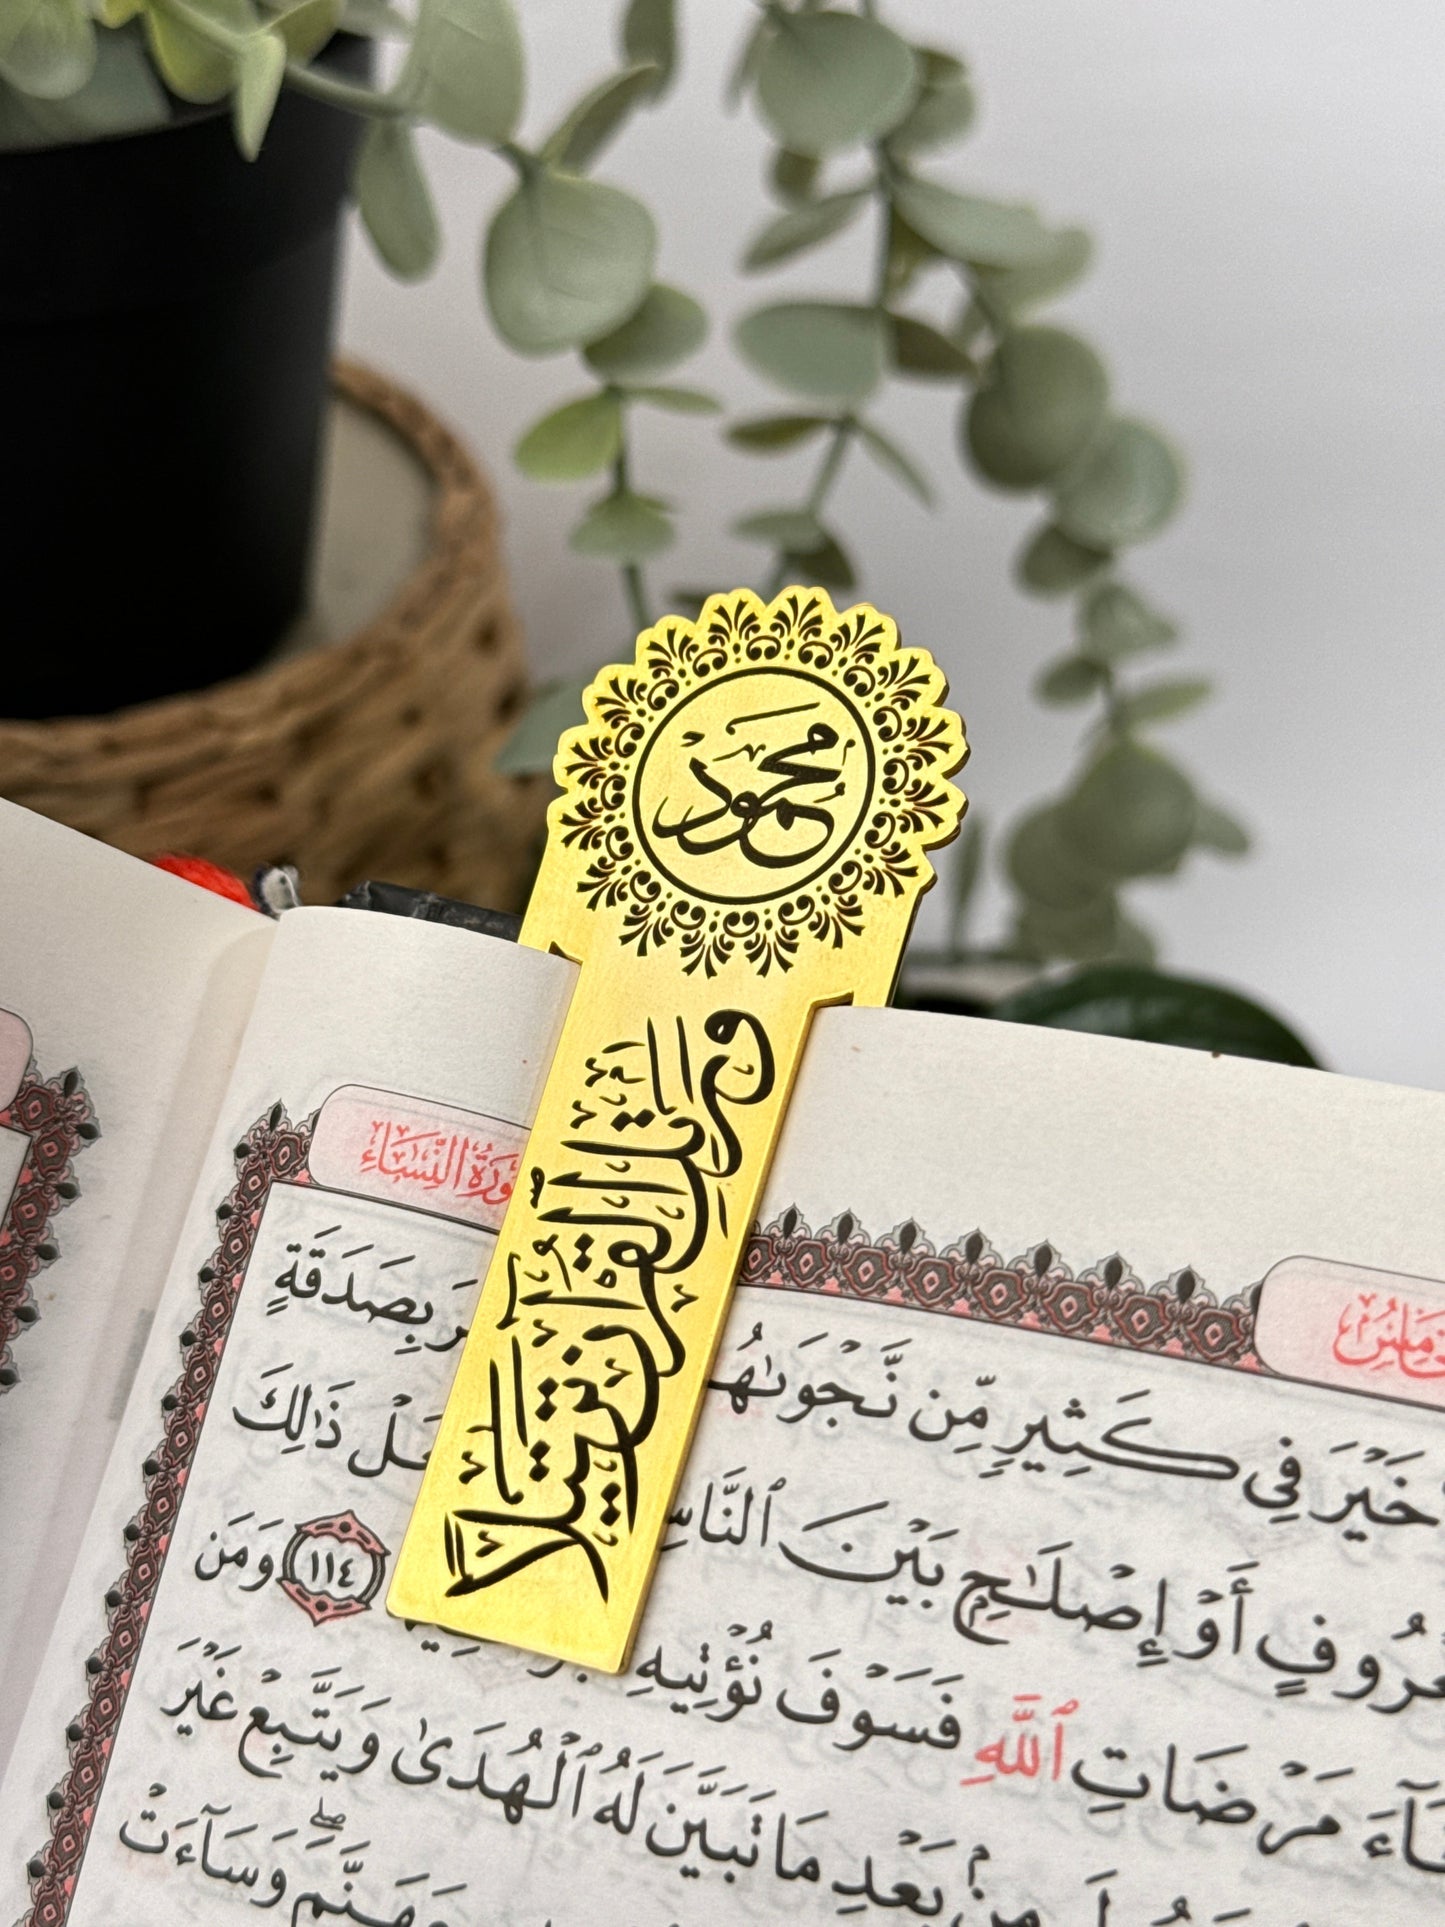 محمود
ورتل القرآن ترتيلا
سُورَةُ النِّسَاءِ
خَيْرَ فِي كَثِيرٍ مِّن نَّجْوَىٰهُمْ
بِصَدَقَةٍ
أَوْ إِصْلَٰحٍ بَيْنَ ٱلنَّاسِ
ذَٰلِكَ
مَرْضَاتِ ٱللَّهِ فَسَوْفَ نُؤْتِيهِ
١١٤ وَمَن
مَا تَبَيَّنَ لَهُ ٱلْهُدَىٰ وَيَتَّبِعْ غَيْرَ
مِنۢ بَعْدِ
وَسَآءَتْ